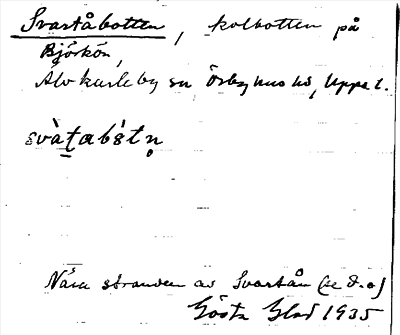 Svartåbotten, kolbotten på
Björkön,
Älvkarleby sn Örbyhus hd, Uppl.
svàtabåtn
Nära stranden av Svartån (se d.o)
Gösta Glad 1935